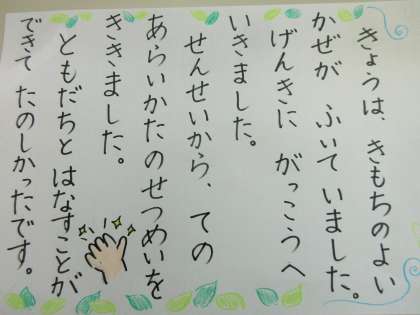 きょうは、きもちのよい
かぜが ふいていました。
げんきに がっこうへ
いきました。
せんせいから、ての
あらいかたのせつめいを
ききました。
ともだちと はなすことが
できて たのしかったです。